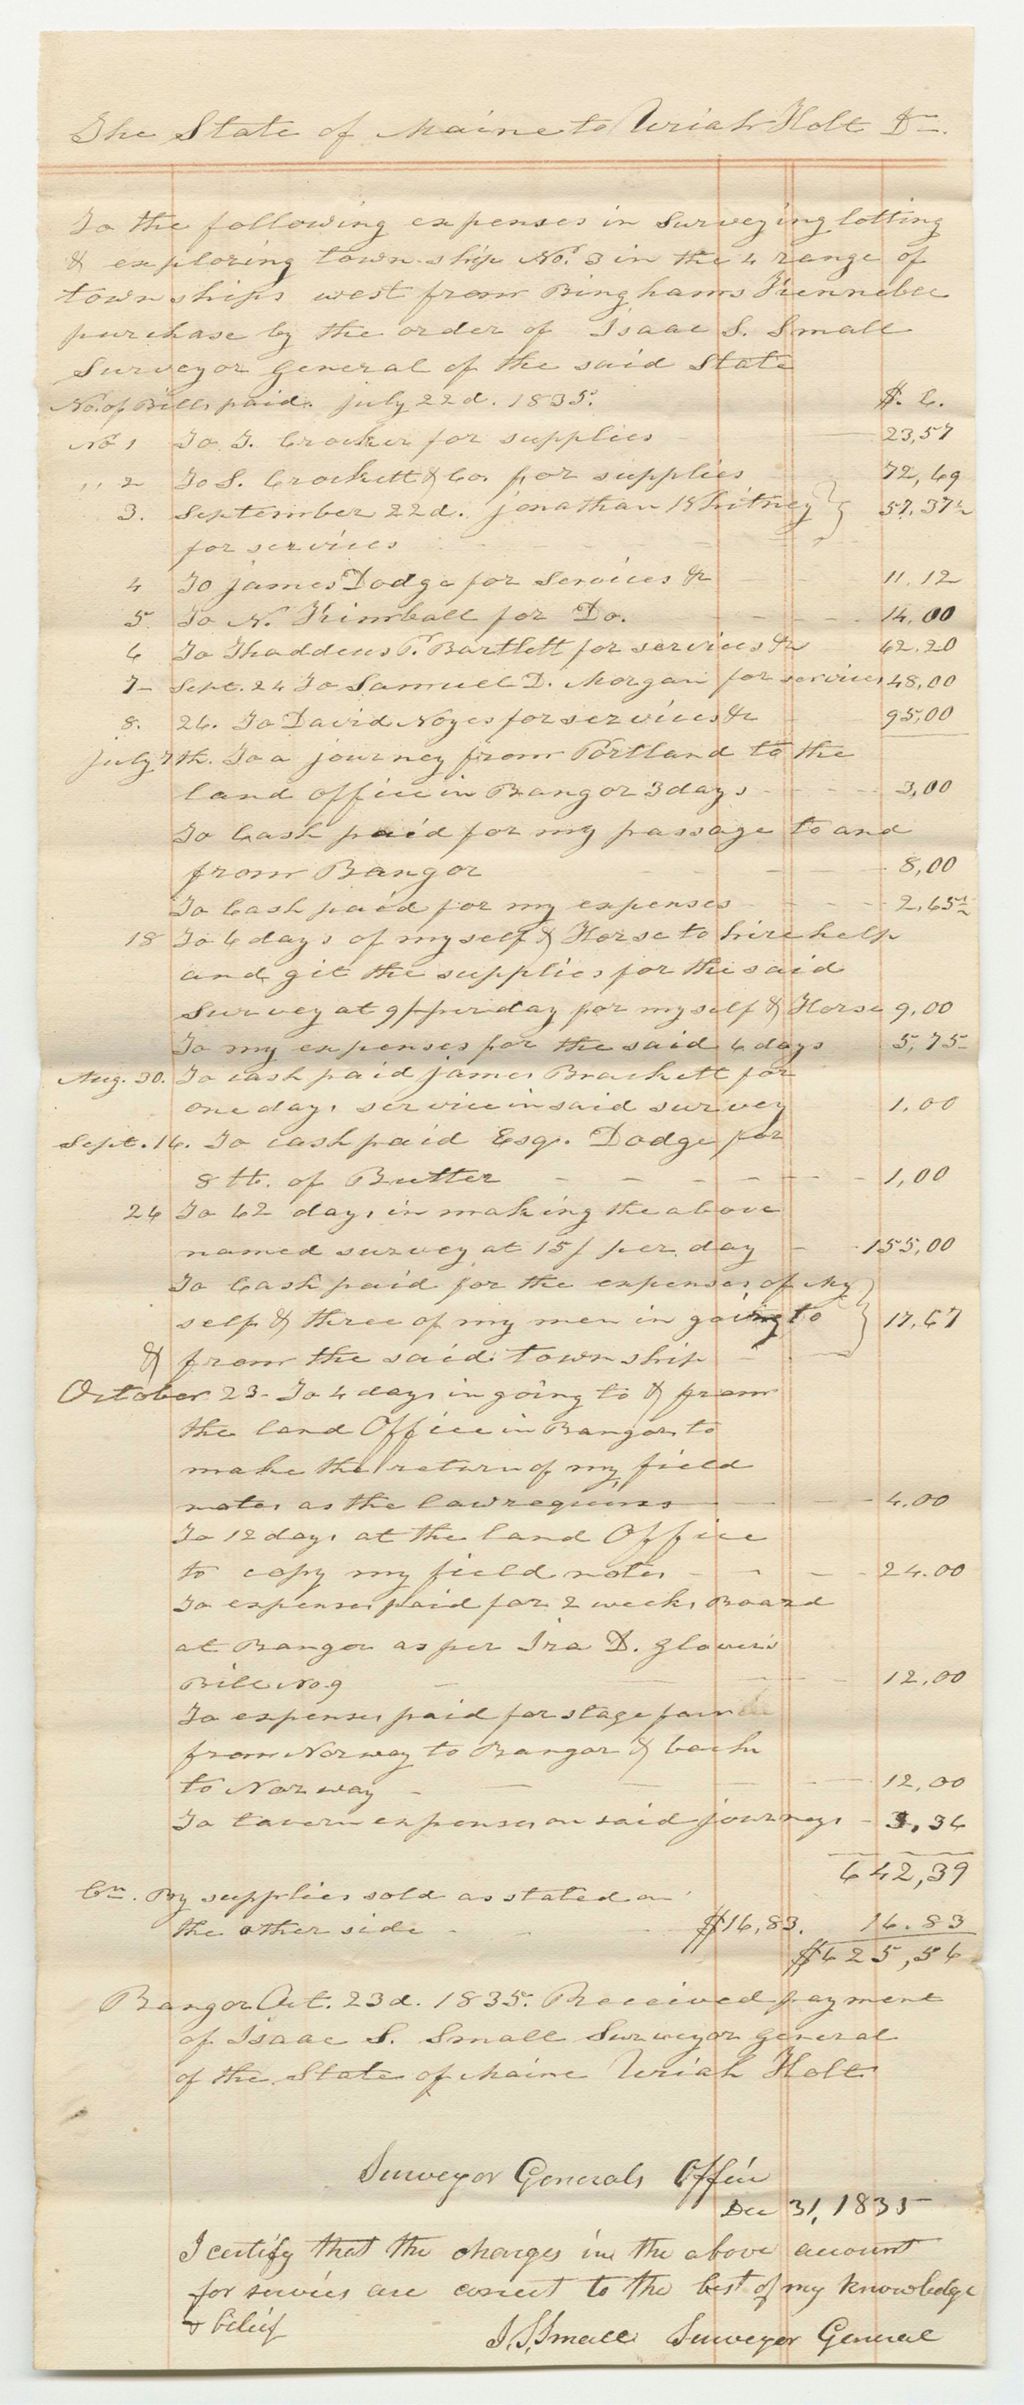 The State of Maine to Uriah Holt Dr.
To the following expenses in surveying lotting
& exploring township No. 3 in the 4 range of
townships west from Binghams Kennebec
purchase by the order of Isaac S. Small
Surveyor General of the said State
No. of Bills paid. July 22d. 1835. $. C.
No 1 To T. Crocker for supplies 23,57
" 2 To S. Crockett & Co. for supplies 72,69
3. September 22d. Jonathan Whitney 57.37½
for services
4 To James Dodge for services &c 11.12
5. To N. Kimball for Do. 14,00
6 To Thaddeus P. Bartlett for services &c 62.20
7 Sept. 24 To Samuel D. Morgan for services 48,00
8. 26. To David Noyes for services &c 95,00
July 7th. To a journey from Portland to the
land office in Bangor 3 days 3,00
To Cash paid for my passage to and
from Bangor 8,00
To Cash paid for my expenses 2,65½
18 To 6 days of myself & Horse to hire help
and git the supplies for the said
survey at 9/ per day for my self & Horse 9,00
To my expenses for the said 6 days 5,75
Aug. 30. To cash paid James Brackett for
one days service in said survey 1,00
Sept. 16. To cash paid Esq. Dodge for
8 lb. of Butter 1,00
26 To 62 days in making the above
named survey at 15/ per day 155,00
To Cash paid for the expenses of my
self & three of my men in going to 17,67
& from the said township
October 23 To 4 days in going to & from
the land Office in Bangor to
make the return of my field
notes as the law requires 4.00
To 12 days at the land Office
to copy my field notes 24.00
To expenses paid for 2 weeks Board
at Bangor as per Ira D. Glover's
Bill No 9 12.00
To expenses paid for stage fare
from Norway to Bangor & back
to Norway 12,00
To tavern expenses on said journeys 3.36
642,39
Cr. By supplies sold as stated on
the other side $16,83. 16.83
$625,56
Bangor Oct. 23d. 1835. Received payment
of Isaac S. Small Surveyor general
of the State of Maine Uriah Holt
Surveyor Generals Office
Dec 31, 1835
I certify that the charges in the above account
for servies are correct to the best of my knowledge
& belief
I.S. Small Surveyor General